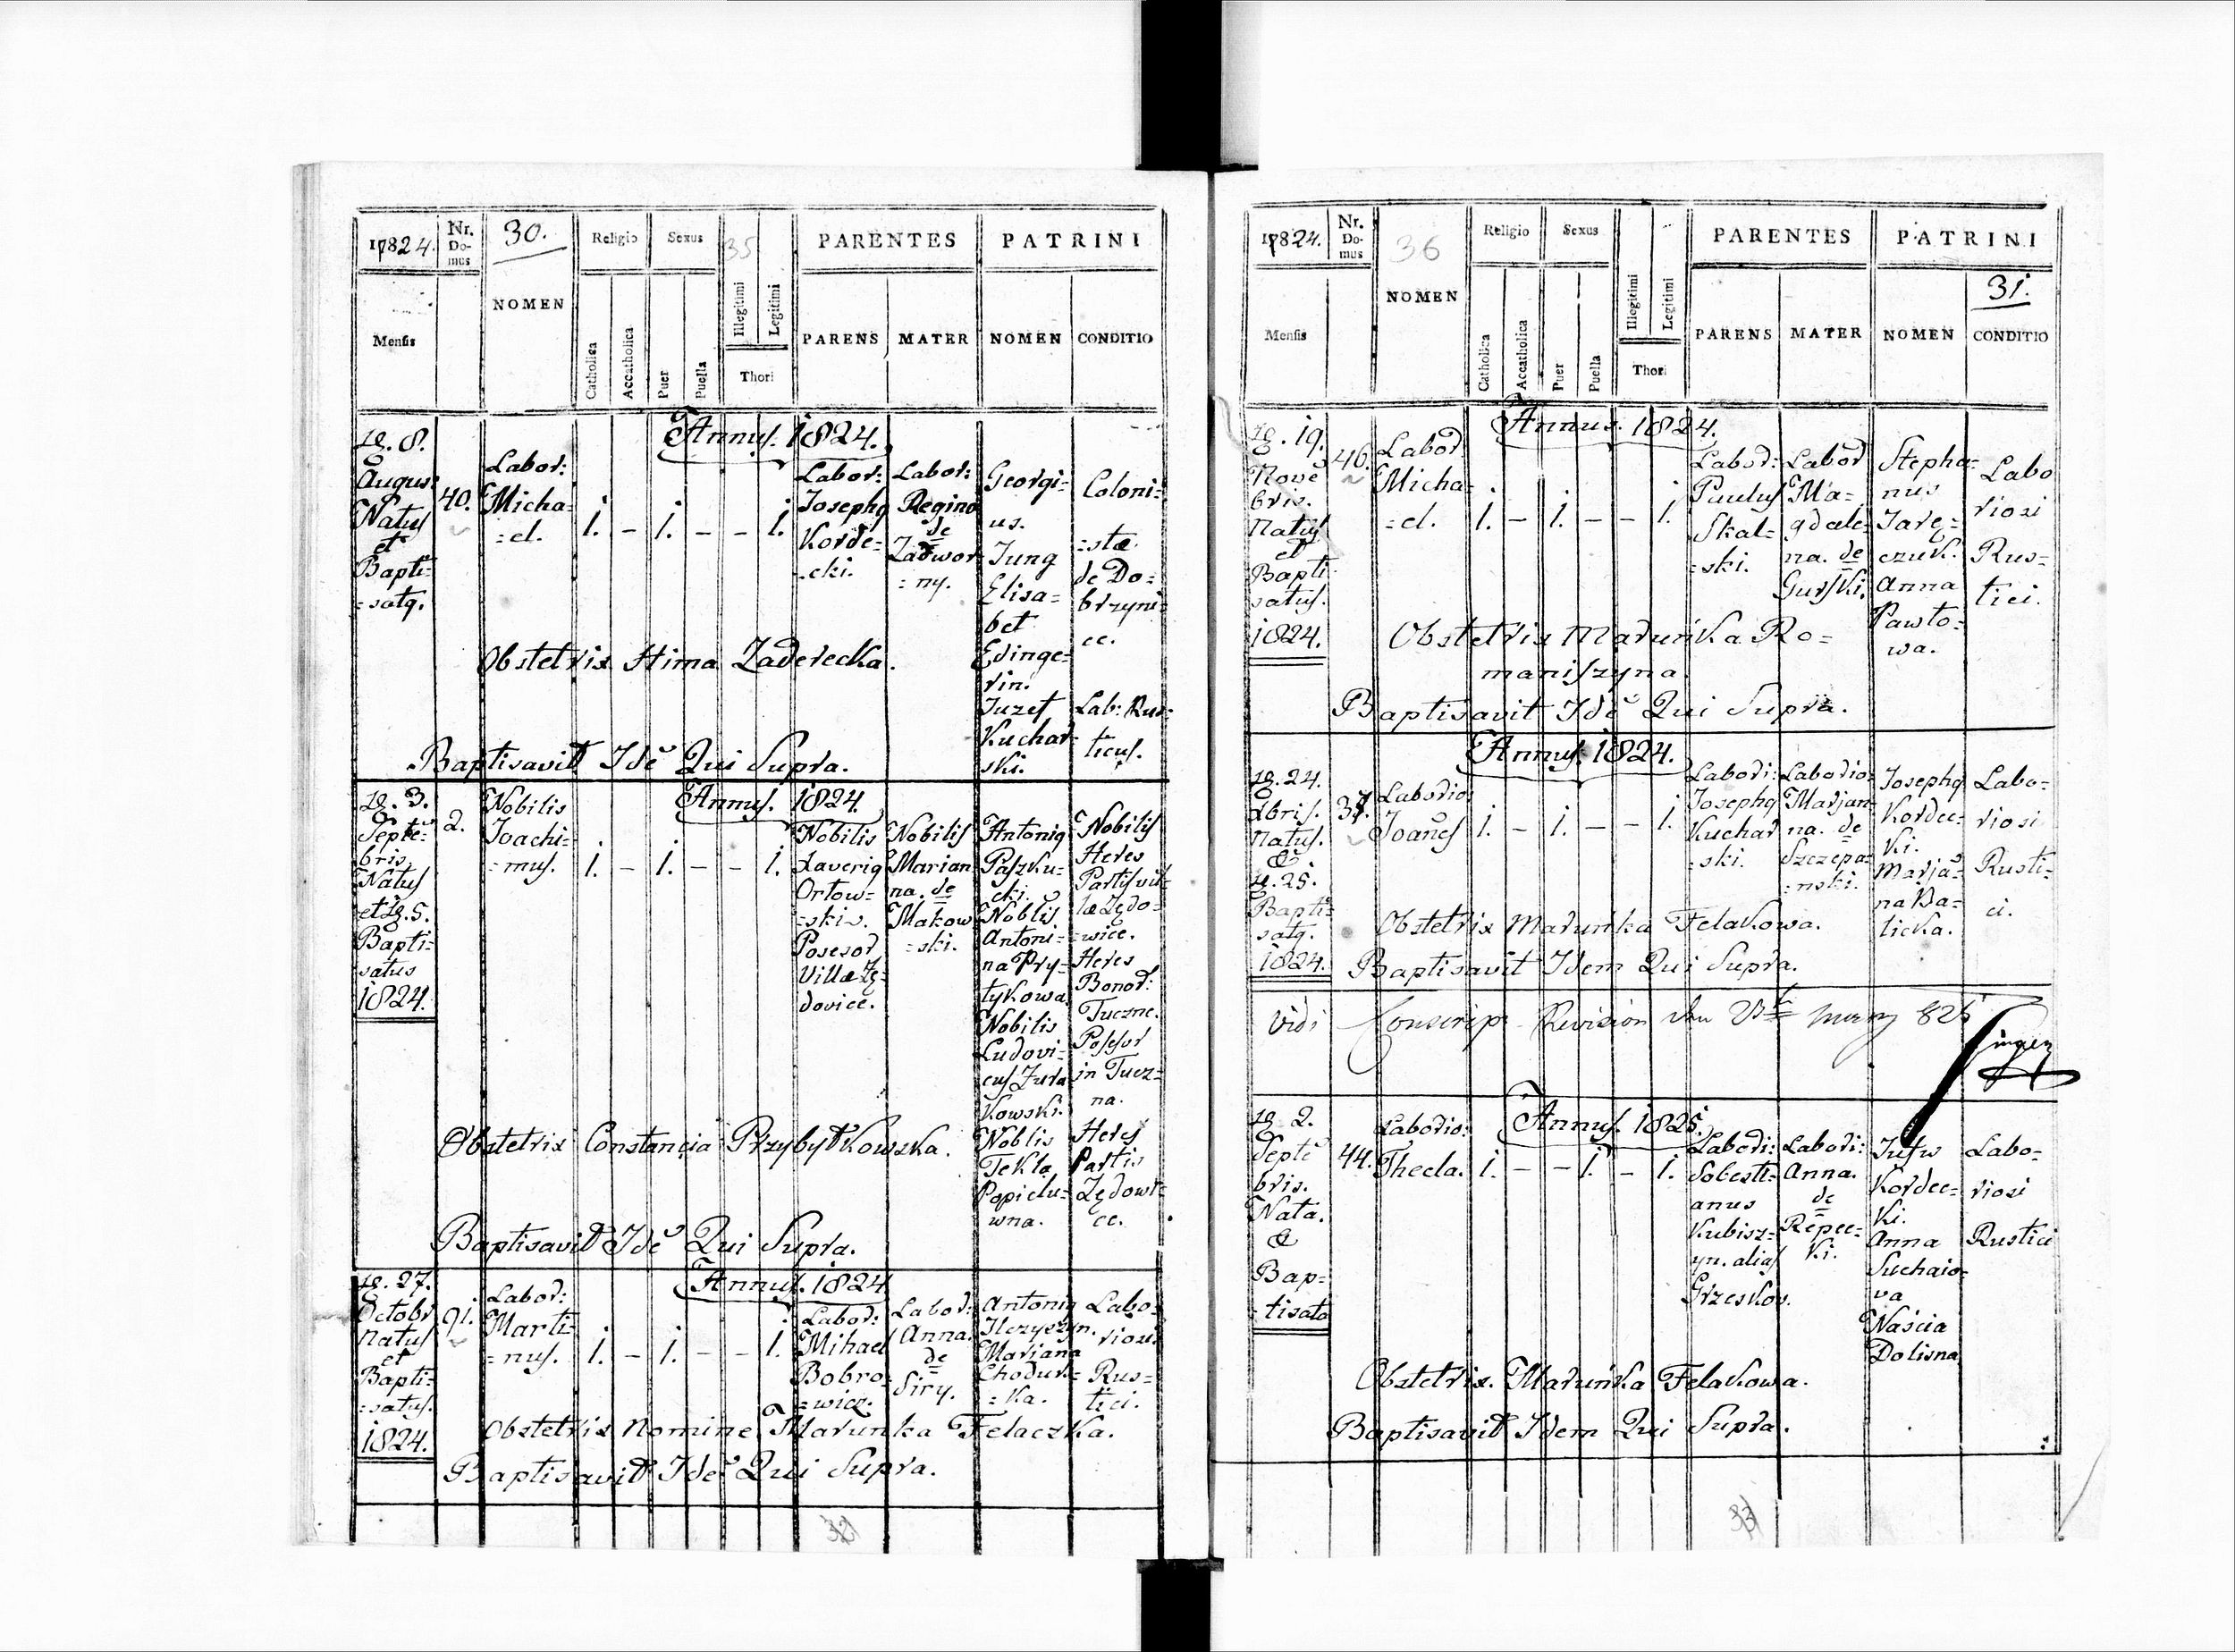 1824.
Nr. Domus
30.
Religio
Sexus
35
PARENTES
PATRINI
Mensis
NOMEN
Catholica
Accatholica
Puer
Puella
Illegitimi
Legitimi
Thori
PARENS
MATER
NOMEN
CONDITIO
Annus. 1824.
8.
Augus:
Natus
et
Bapti-
=satq.
40.
Labor:
Micha-
=el.
1. – 1. – – 1.
Labor:
Josephq
Korde-
=cki.
Labor:
Regina
de
Zadwor-
=ny.
Georgi-
us.
Jung
Elisa-
bet
Edinge-
rin.
Juzef
Kuchar-
ski.
Coloni-
=stæ
de Do-
brzyni-
ce.
Lab: Rus-
ticus.
Obstetrix Hima Zaderecka.
Baptisavit Idē Qui Supra.
Annus. 1824.
3.
Septē-
bris
Natus
et 5.
Bapti-
satus
1824.
2.
Nobilis
Joachi-
=mus.
1. – 1. – – 1.
Nobilis
Xaveriq
Orłow-
=skis.
Posesor
Villæ Zę-
dovice.
Nobilis
Marian
na. de
Makow
=ski.
Antoniq
Paszku-
cki.
Noblis
Antoni-
na Pry-
tykowa
Nobilis
Ludovi-
cus Żura
kowski.
Noblis
Tekla
Popielu-
wna.
Nobilis
Heres
Partis vil-
læ Zędo-
=wice.
Heres
Bonor:
Tuczne.
Possesor
in Tucz-
na.
Heres
Partis
Zędowi-
ce.
Obstetrix Constancia Przybytkowska.
Baptisavit Idē Qui Supra.
Annus. 1824
27.
Octobr
Natus
et
Bapti-
=satus.
1824.
91.
Labor:
Marti-
=nus.
1. – 1. – – 1.
Labor:
Mihael
Bobro-
=wicz.
Labor:
Anna.
de
Siry.
Antoniq
Ilczyszyn.
Mariana
Chodur-
=ka.
Labo-
riosi
Rus-
tici.
Obstetrix Nomine Marunka Felaczka.
Baptisavit Idē Qui Supra.
1824.
Nr. Domus
36
Religio
Sexus
PARENTES
PATRINI
31.
Mensis
NOMEN
Catholica
Accatholica
Puer
Puella
Illegitimi
Legitimi
Thori
PARENS
MATER
NOMEN
CONDITIO
Annus. 1824.
19.
Novē
bris.
Natus
et
Bapti-
satus.
1824.
46.
Labor
Micha-
=el.
1. – 1. – – 1.
Labor:
Paulus
Skal-
=ski.
Labor
Ma-
gdale-
na. de
Gurski.
Stepha-
nus
Jare-
czuk.
Anna
Pawło-
wa.
Labo
riosi
Rus-
tici.
Obstetrix Maruńka Ro-
maniszyna.
Baptisavit Idē Qui Supra.
Annus. 1824.
24.
Xbris.
Natus.
&
25.
Bapti-
satq.
1824.
37.
Laborio:
Joanēs
1. – 1. – – 1.
Labori:
Josephq
Kuchar
=ski.
Laborio:
Marjan
na. de
Szczepa-
=nski.
Josephq
Kordec-
ki.
Marjā-
na Ba-
licka.
Labo-
riosi
Rusti-
ci.
Obstetrix Maruńka Felakowa.
Baptisavit Idem Qui Supra.
Vidi
Annus. 1825.
2.
Septē
bris.
Nata.
&
Bap-
=tisata
44.
Laborio:
Thecla.
1. – – 1. – 1.
Labori:
Sobesti-
anus
Kubisz-
yn. alias
Grzeskov.
Labori:
Anna.
de
Repec-
ki.
Jusw
Kordec-
ki.
Anna
Suchaio-
va
Naścia
Dolisna
Labo-
riosi
Rustici
Obstetrix. Maruńka Felakowa.
Baptisavit Idem Qui Supra.